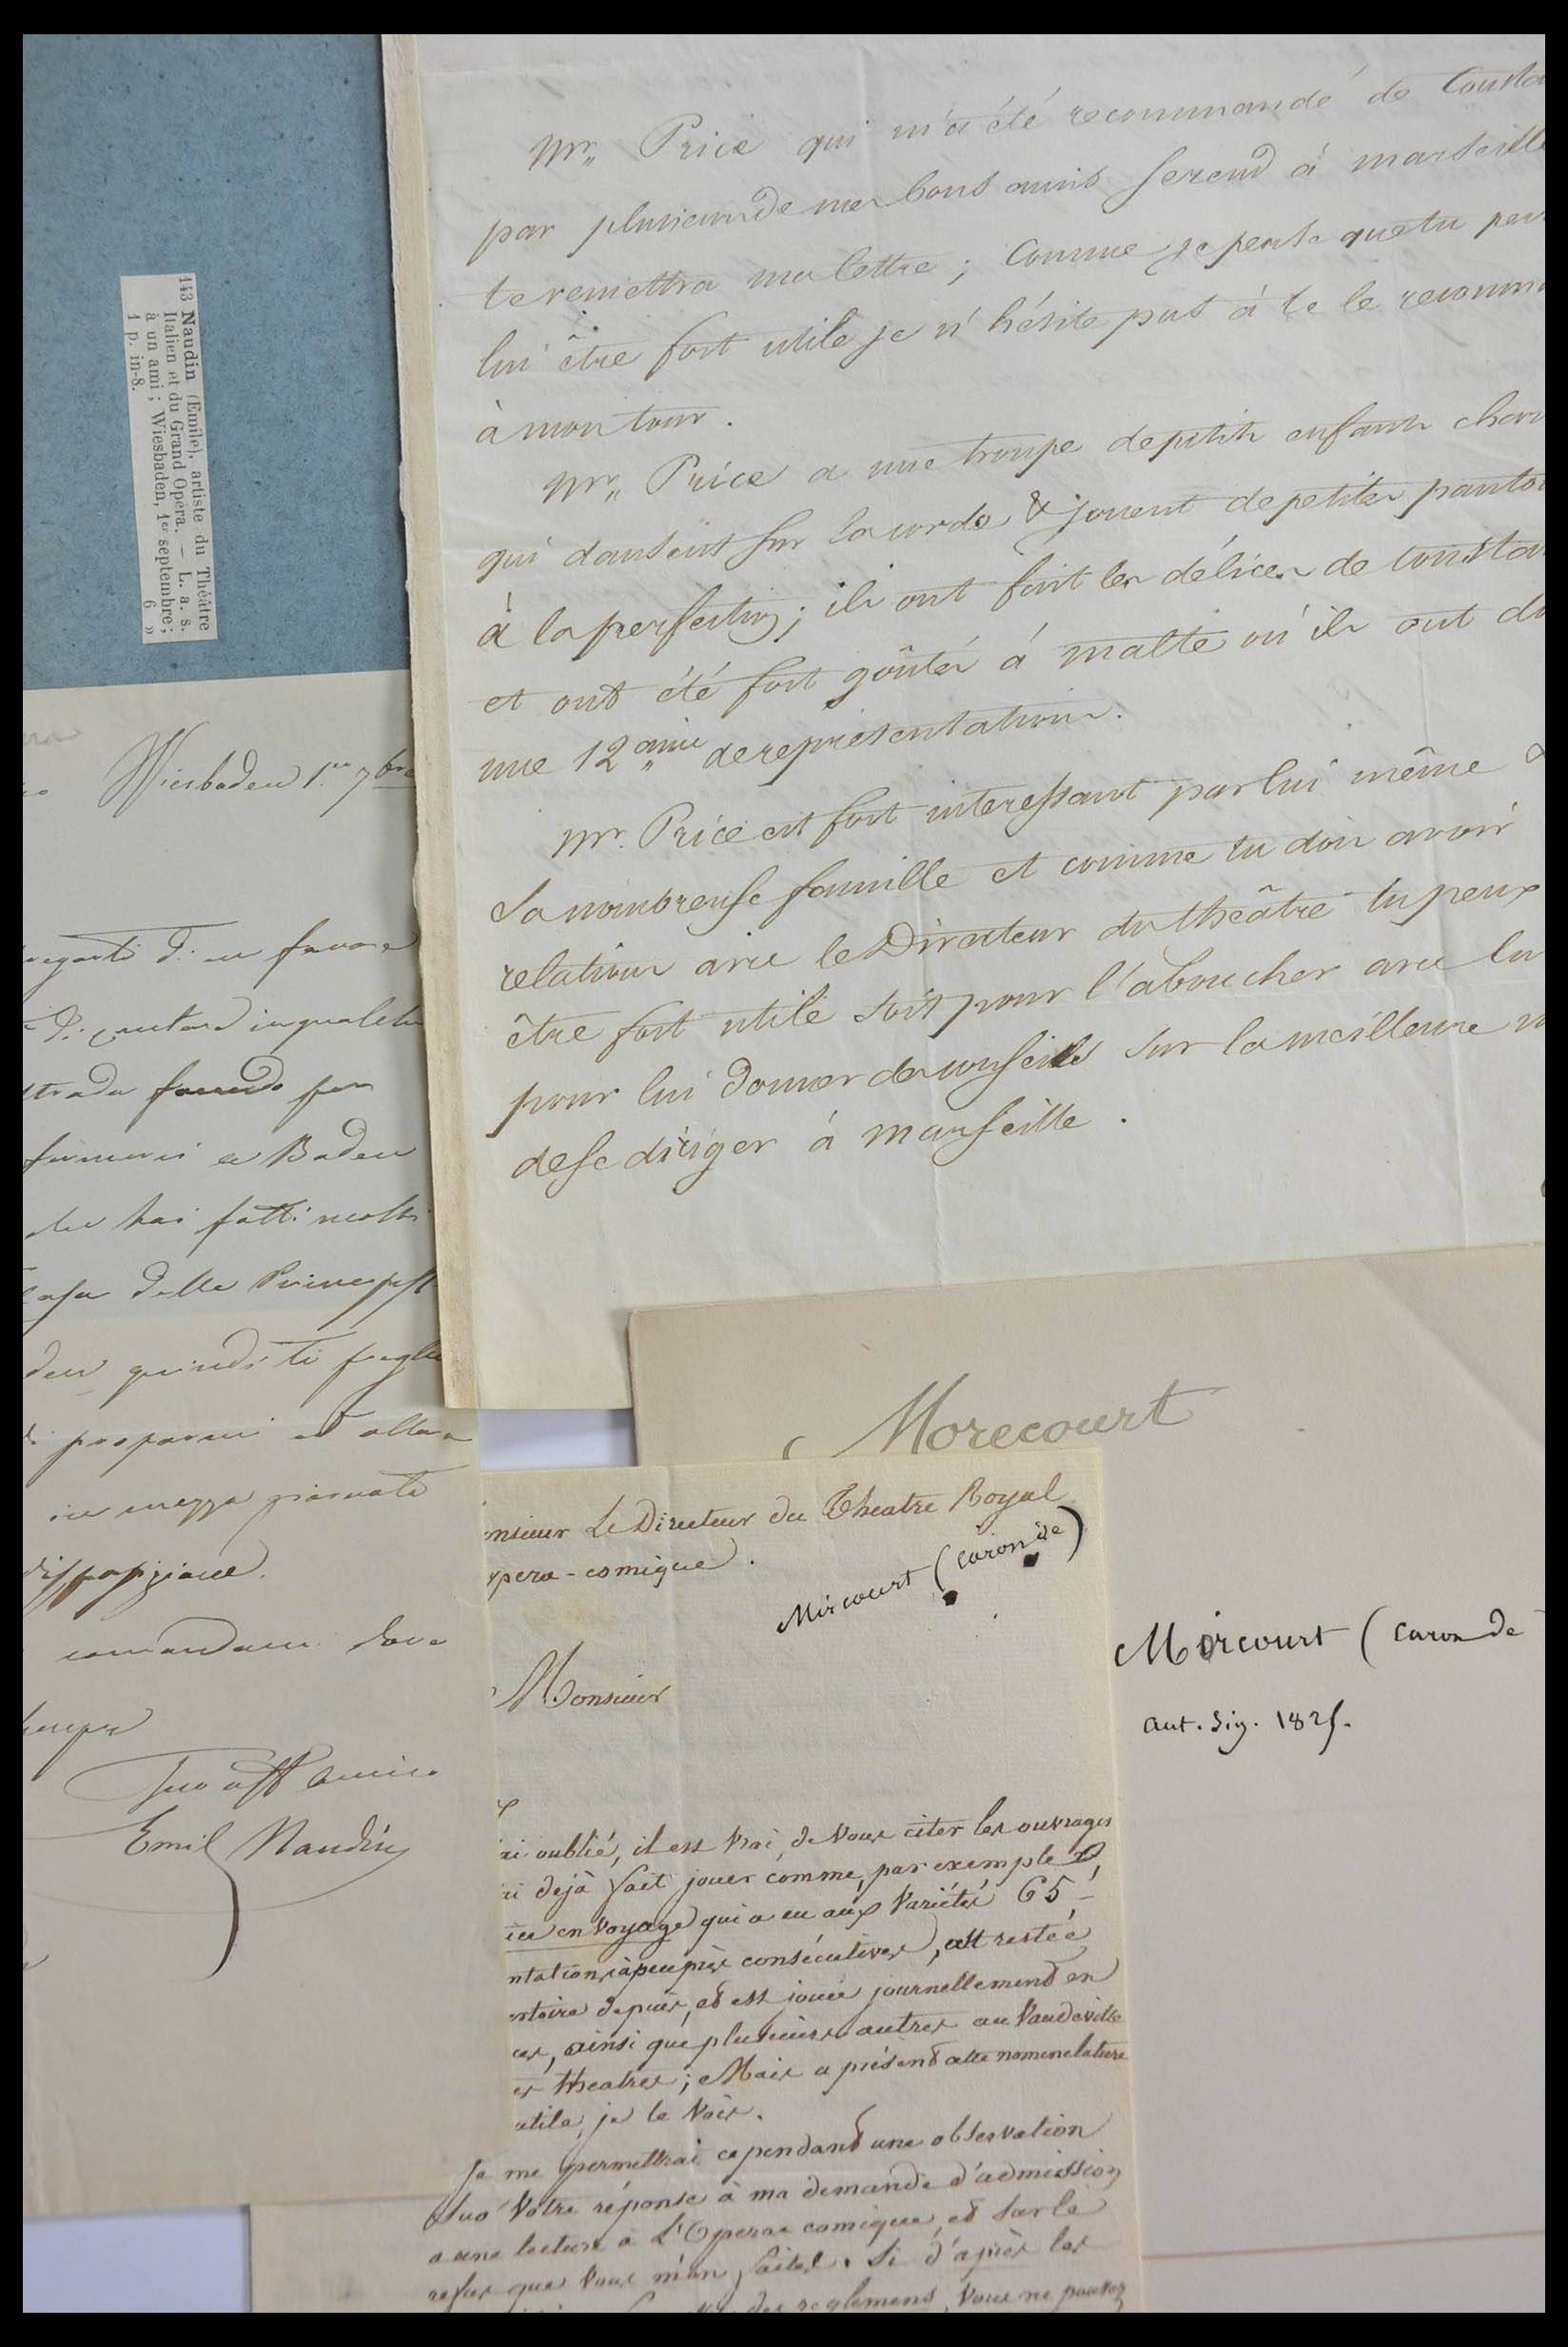 143 Naudin (Emile), artiste du Théâtre
Italien et du Grand Opéra. — L. a. s.
à un ami ; Wiesbaden, 1er septembre ;
1 p. in-8. 6 »
Wiesbaden 1.er 7bre
favore
in qualche
strada facendo per
a Baden
hai fatti molti
casa della
quindi ti
in mezza giornata
comandami dove
sempre
Tuo aff amico
Emil Naudin
Mr„ Price qui m'a été recommandé de Consta
par plusieurs de mes bons amis se rend à marseille
te remettra ma lettre ; Comme je pense que tu peux
lui être fort utile je n'hésite pas à te le recomm
à mon tour .
Mr„ Price a une troupe de petits enfants char
qui dansent sur la corde & jouent de petites panto
à la perfection ; ils ont fait les délices de Consta
et ont été fort goûtés à malte où ils ont do
une 12aine de représentations .
Mr. Price est fort interessant par lui même &
Sa nombreuse famille et comme tu dois avoir
relations avec le Directeur du théâtre tu peux
être fort utile soit pour l'aboucher avec lui
pour lui donner des conseils sur la meilleure m
de se diriger à marseille .
Morecourt
onsieur Le Directeur du Theatre Royal
opera - comique .
Mircourt (Caron de)
Monsieur
Mircourt (Caron de
aut. sig. 1825.
ai oublié, il est vrai, de vous citer les ouvrages
ai dejà fait jouer comme, par exemple
en voyage qui a eu aux Variétés 65
ntations à peu près consécutives, est restée
ertoire depuis, et est jouée journellement en
ces, ainsi que plusieurs autres au Vaudeville
es theatres ; Mais a présent cette nomenclature
utile, je le vois .
Je me permettrai cependant une observation
sur votre réponse à ma demande d'admission
a une lecture à L'Opera comique, et sur le
refus que vous m'en faites . Si d'après les
des reglemens, Vous ne pouvez